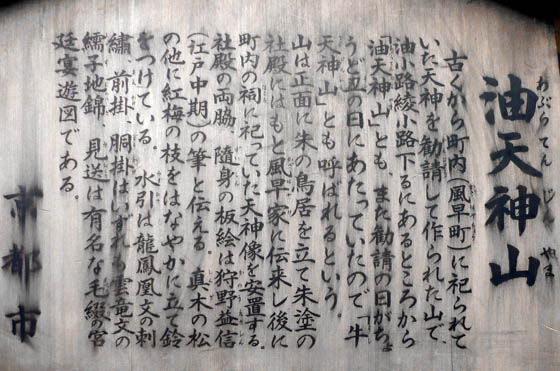 あぶらてんじんやま
油天神山
古くから町内(風早町)に祀られて
いた天神を勧請して作られた山で、
油小路綾小路下るにあるところから
「油天神山」とも、また勧請の日がちょ
うど丑の日にあたっていたので「牛
天神山」とも呼ばれるという。
山は正面に朱の鳥居を立て朱塗の
社殿にはもと風早家に伝来し後に
町内の祠に祀っていた天神像を安置する。
社殿の両脇、随身の板絵は狩野益信
(江戸中期)の筆と伝える。真木の松
の他に紅梅の枝をはなやかに立て鈴
をつけている。水引は龍鳳凰文の刺
繍、前掛、胴掛はいずれも雲竜文の
繻子地錦、見送は有名な毛綴の宮
廷宴遊図である。
京都市